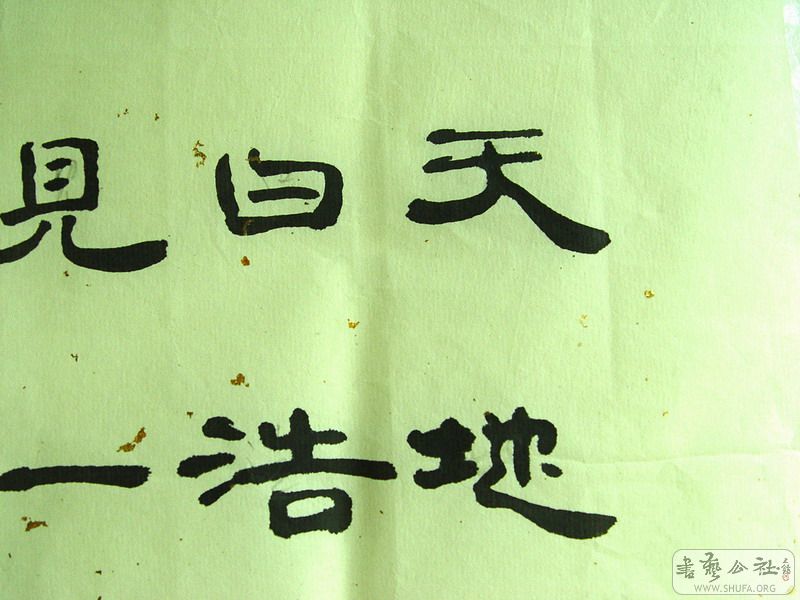 天地
白浩
見一
書藝公社
WWW.SHUFA.ORG